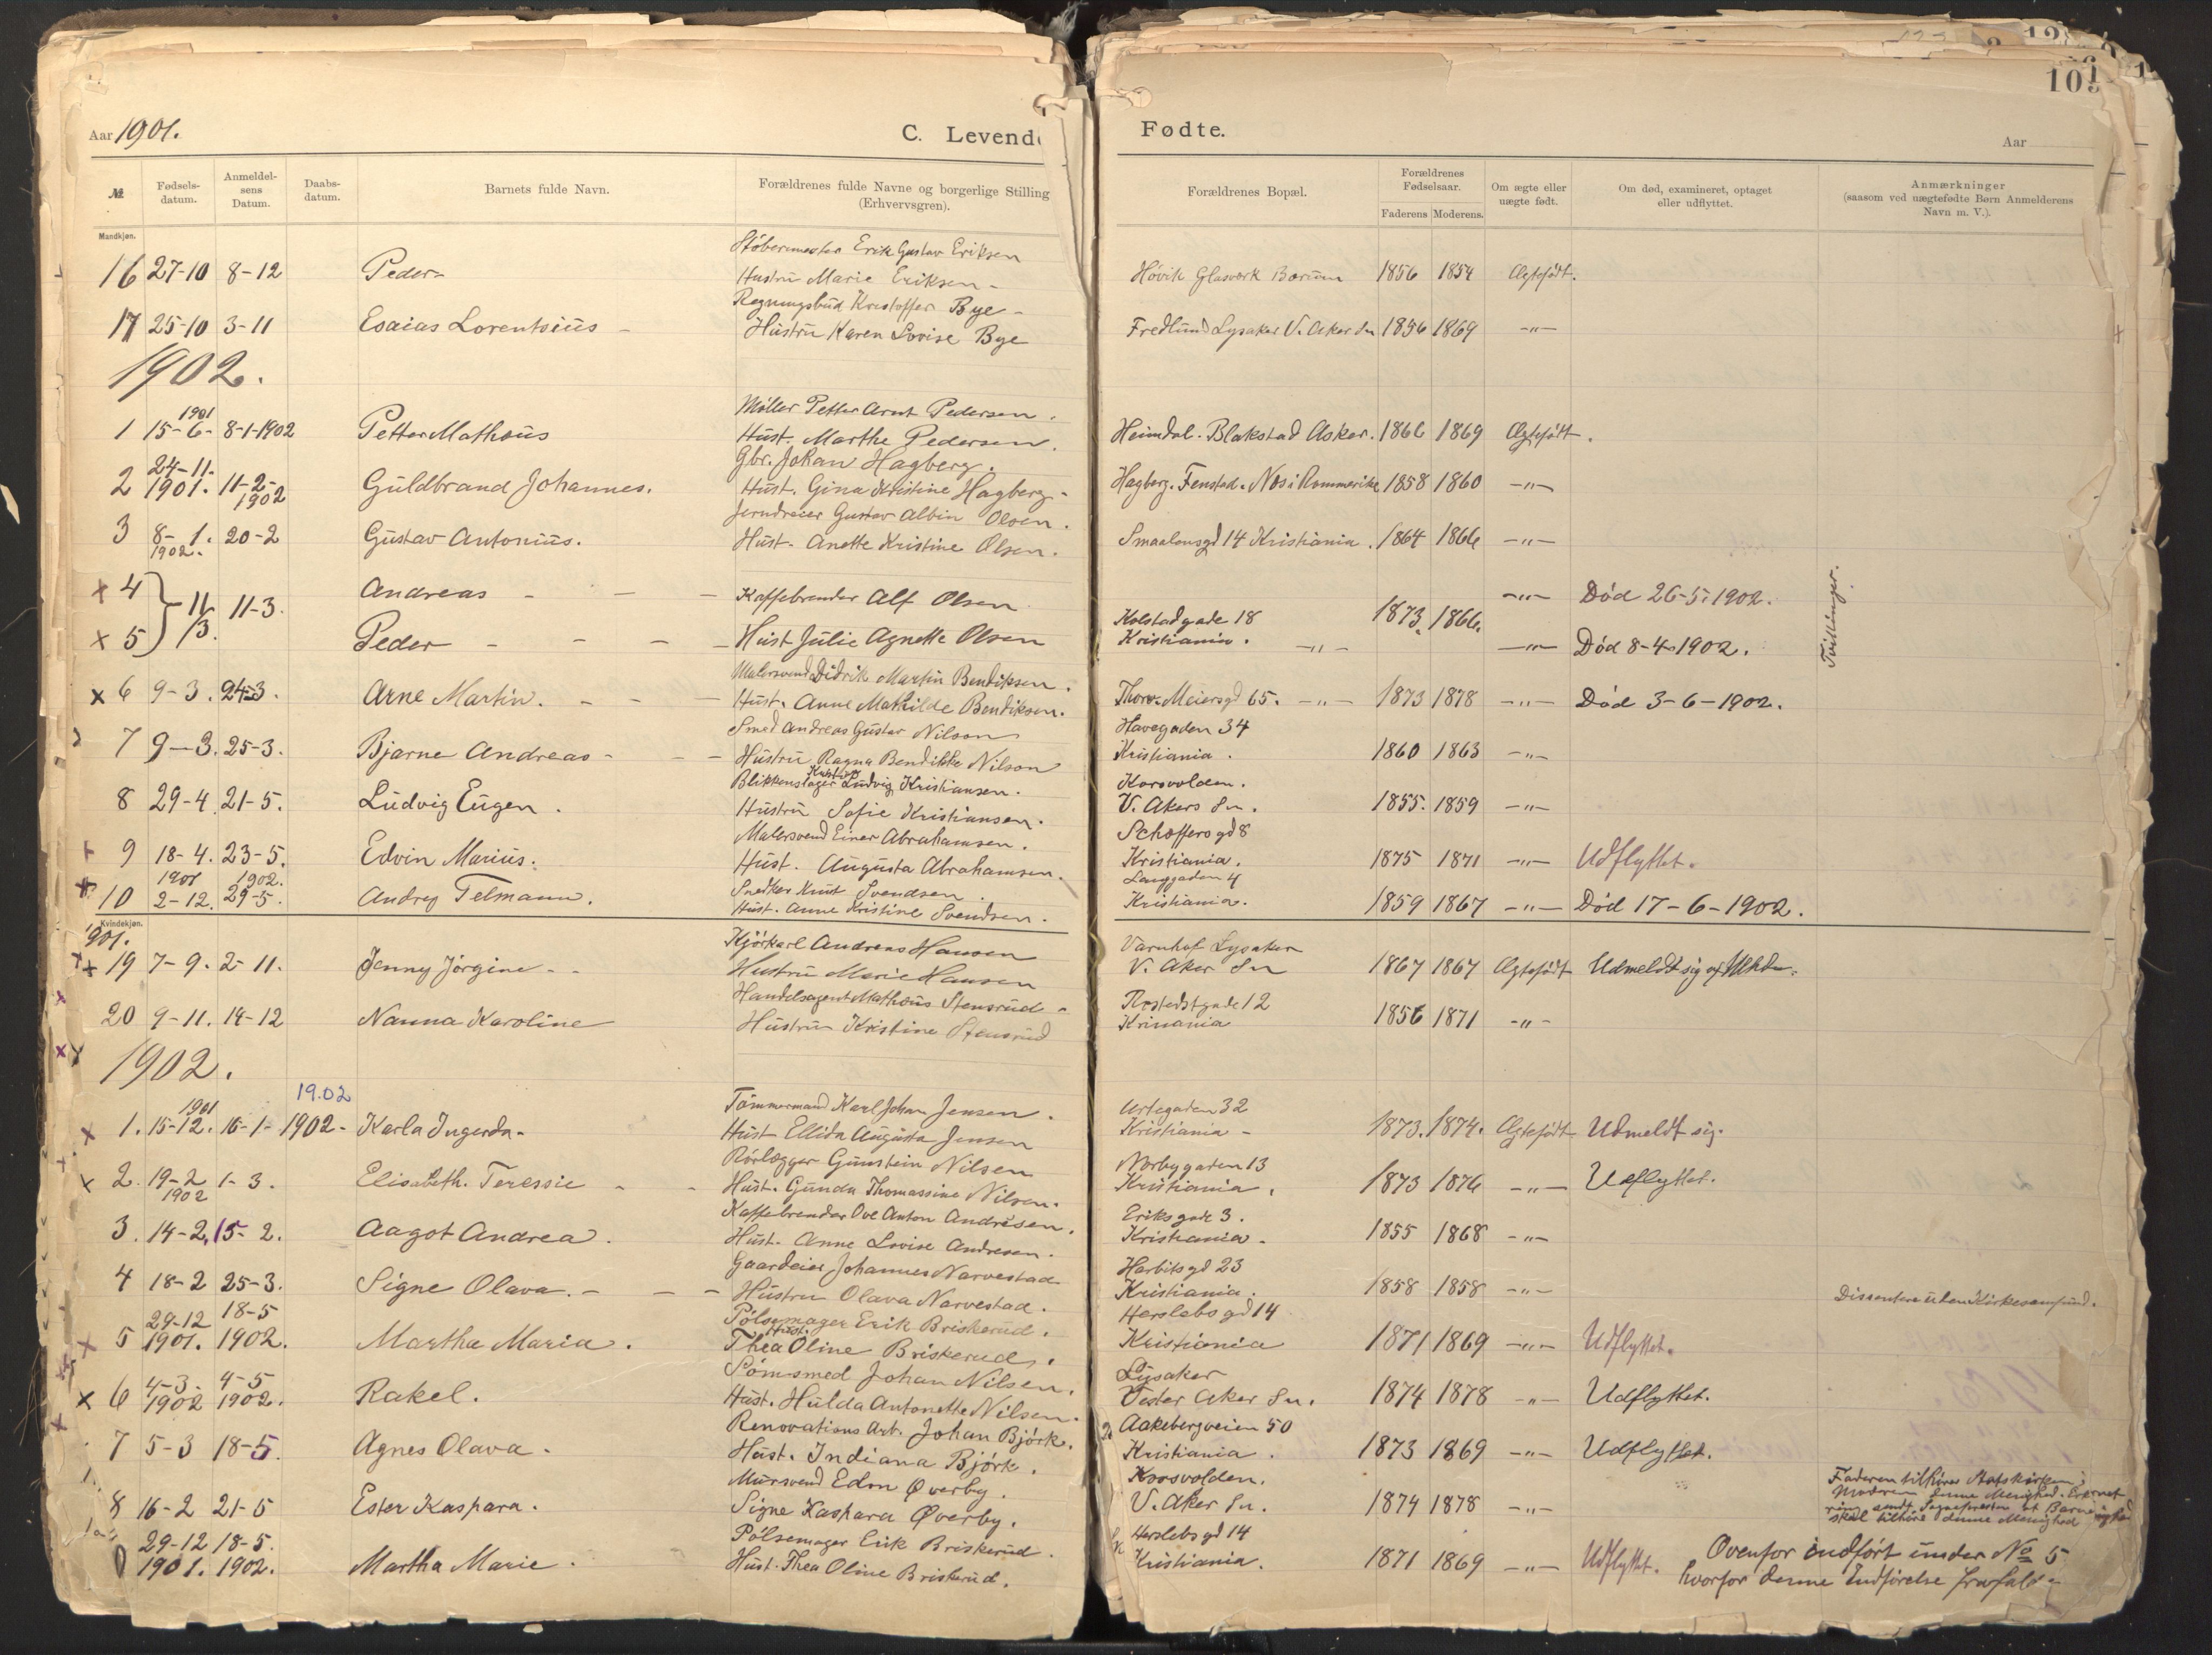 Aar 1901.
C. Levende
Fødte.
Aar
№
Fødsels-
datum.
Anmeldel-
sens
Datum.
Daabs-
datum.
Barnets fulde Navn.
Forældrenes fulde Navne og borgerlige Stilling
(Erhvervsgren).
Forældrenes Bopæl.
Forældrenes
Fødselsaar.
Faderens Moderens.
Om ægte eller
uægte født.
Om død, examineret, optaget
eller udflyttet.
Anmærkninger
(saasom ved uægtefødte Børn Anmelderens
Navn m. V.).
Mandkjøn.
Støbermester Erik Gustav Eriksen
16 27-10 8-12 Peder Hustru Marie Eriksen Høvik Glasværk Bærum 1856 1854 Ægtefødt.
Regningsbud Kristoffer Bye
17 25-10 3-11 Esaias Lorentsius Hustru Karen Lovise Bye Fredlund Lysaker V. Aker Sn 1856 1869 -"-
1902.
1901 Møller Petter Arnt Pedersen.
1 15-6- 8-1-1902 Petter Mathæus Hust. Marthe Pedersen. Heimdal. Blakstad Asker. 1866 1869 Ægtefødt.
24-11. Gbr. Johan Hagberg.
2 1901. 11-2-1902 Guldbrand Johannes. Hust. Gina Kristine Hagberg. Hagberg. Fenstad. Nes i Rommerike 1858 1860 -"-
Jerndreier Gustav Albin Olsen.
3 8-1. 1902. 20-2 Gustav Antonius. Hust. Anette Kristine Olsen. Smaalensgd 14 Kristiania. 1864 1866 -"-
x 4 Andreas Kaffebrender Alf Olsen -"- Død 26-5-1902. Tvillinger.
11/3. 11-3. Kolstadgade 18 1873. 1866.
x 5 Peder Hust Julie Agnette Olsen Kristiania. -"- Død 8-4-1902.
Malersvend Didrik Martin Bendiksen.
x 6 9-3. 24-3. Arne Martin. Hust. Anne Mathilde Bendiksen. Thorv. Meiersgd 65. -"- 1873 1878 -"- Død 3-6-1902.
Smed Andreas Gustav Nilson Havegaden 34
7 9-3. 25-3. Bjarne Andreas Hustru Ragna Bendikke Nilson Kristiania. 1860 1863 -"-
Blikkenslager Ludvig Kristiansen. Korsvolden.
8 29-4. 21-5. Ludvig Eugen. Hustru Sofie Kristiansen. V. Akers Sn. 1855. 1859 -"-
Malersvend Einar Abrahamsen. Schæffersgd 8
9 18-4. 23-5. Edvin Marius. Hust. Augusta Abrahamsen. Kristiania. 1875 1871 -"- Udflyttet.
1901 1902. Snedker Knut Svendsen Langgaden 4
10 2-12. 29-5. Andrey Telmann. Hust. Anne Kristine Svendsen. Kristiania. 1859 1867 -"- Død 17-6-1902.
Kvindekjøn.
1901. Kjørkarl Andreas Hansen Varnhof Lysaker
x 19 7-9. 2-11. Jenny Jørgine Hustru Marie Hansen V. Aker Sn 1867 1867 Ægtefødt Udmeldt sig af
Handelsagent Mathæus Stensrud Rostedsgade 12
20 9-11. 14-12 Nanna Karoline Hustru Kristine Stensrud Kristiania 1856 1871 -"-
1902.
19.02
1901 Tømmermand Karl Johan Jensen. Urtegaden 32
x 1. 15-12. 16-1- 1902- Karla Ingerda. Hust Ellida Augusta Jensen Kristiania 1873. 1874. Ægtefødt Udmeldt sig.
Rørlægger Gunstein Nilsen Norbygaten 13
x 2. 19-2 1902 1-3. Elisabeth. Teressie Hust. Gunda Thomassine Nilsen. Kristiania. 1873 1876 -"- Udflyttet.
Kaffebrender Ove Anton Andresen. Eriksgade 3.
3. 14-2. 15-2. Aagot Andrea. Hust. Anne Lovise Andresen. Kristiania. 1855 1868 -"-
Gaardeier Johannes Narvestad Harbitsgd 23
4 18-2 25-3. Signe Olava. Hustru Olava Narvestad. Kristiania. 1858 1858 -"- Dissentere uden Kirkesamfund.
29-12 18-5 Pølsemager Erik Briskerud. Herslebsgd 14
x 5 1901. 1902. Martha Maria. Hust. Thea Oline Briskerud. Kristiania 1871 1869 -"- Udflyttet.
4-3. 4-5 Sømsmed Johan Nilsen. Lysaker
x 6 1902 1902. Rakel. Hust. Hulda Antonette Nilsen. Vester Aker Sn. 1874 1878 -"- Udflyttet.
Renovations Arb. Johan Bjørk. Aakebergveien 50
7 5-3 18-5 Agnes Olava. Hust. Indiana Bjørk. Kristiania. 1873 1869 -"- Udflyttet.
Mursvend Edm Øverby. Korsvolden. Faderen tilhører Statskirken,
8 16-2 21-5 Ester Kaspara. Signe Kaspara Øverby. V. Aker Sn. 1874 1878 -"- Moderen denne Menighed.
skal tilhøre denne Menighed
29-12 18-5. Pølsemager Erik Briskerud. Herslebsgd 14
1901. 1902. Martha Marie. Hust. Thea Oline Briskerud. Kristiania. 1871 1869 -"- Udflyttet. Ovenfor indført under No 5
hvorfor denne Indførelse